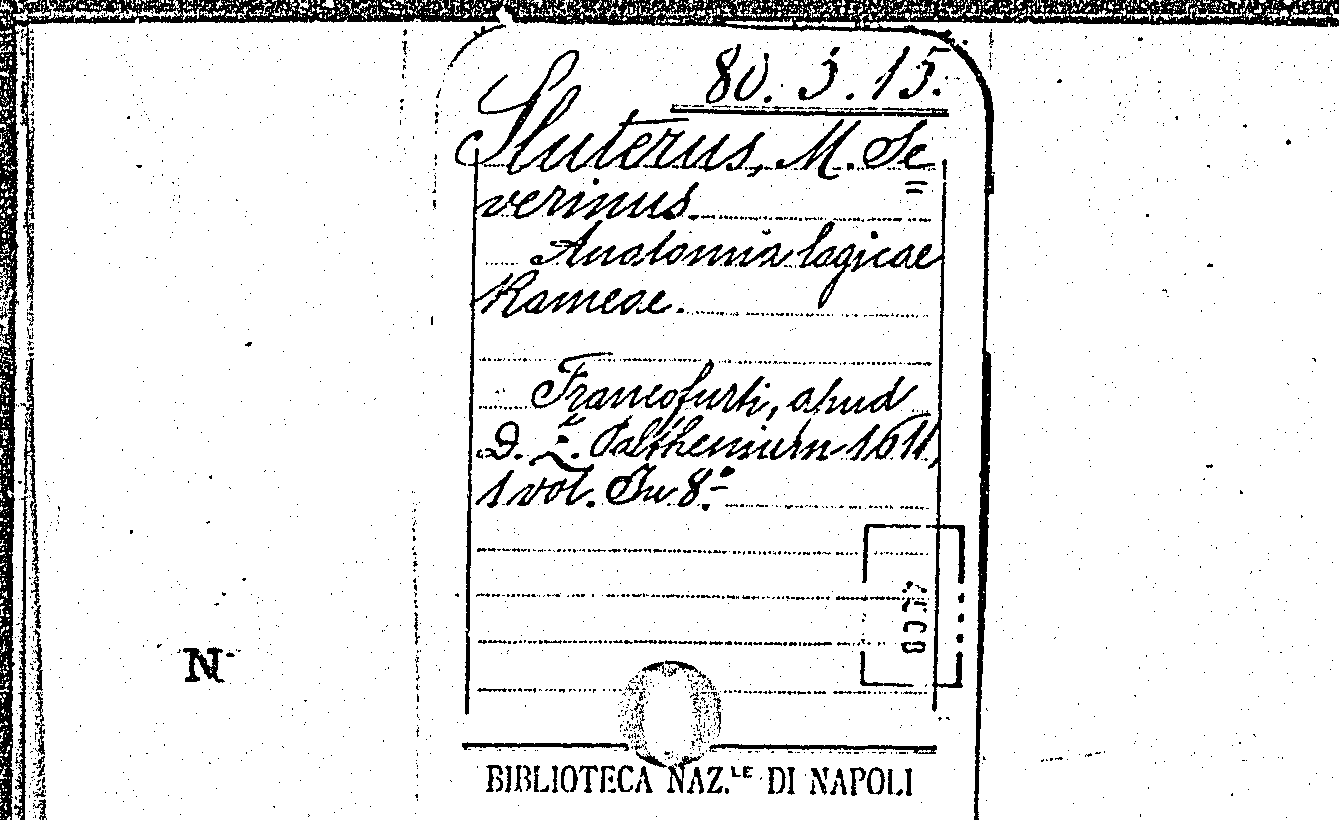 80. 3. 15.
Sluterus, M. Se
verinus.
Anatomia logicae
Rameae.
Francofurti, apud
D. Z. Palthenium 1611,
1 vol. In 8.º
N
BIBLIOTECA NAZ.LE DI NAPOLI